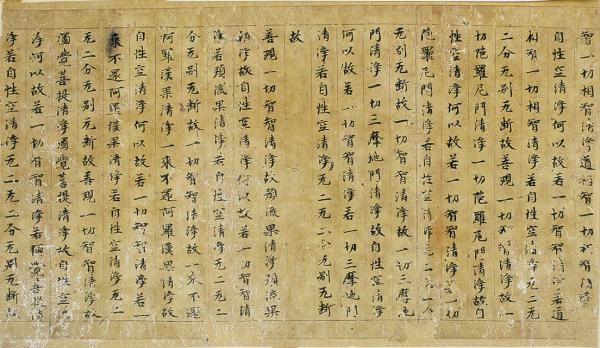 智一切相智清淨道相智一切相智清淨
自性空清淨何以故若一切智智清淨若道
相智一切相智清淨若自性空清淨无二无
二分无別无斷故善現一切智智清淨故一
切陁羅尼門清淨一切陁羅尼門清淨故自
性空清淨何以故若一切智智清淨若一切
陁羅尼門清淨若自性空清淨无二无二分
无別无斷故一切智智清淨故一切三摩地
門清淨一切三摩地門清淨故自性空清淨
何以故若一切智智清淨若一切三摩地門
清淨若自性空清淨无二无二分无別无斷
故
善現一切智智清淨故預流果清淨預流果
清淨故自性空清淨何以故若一切智智清
淨若預流果清淨若自性空清淨无二无二
分无別无斷故一切智智清淨故一來不還
阿羅漢果清淨一來不還阿羅漢果清淨故
自性空清淨何以故若一切智智清淨若一
來不還阿羅漢果清淨若自性空清淨无二
无二分无別无斷故善現一切智智清淨故
獨覺菩提清淨獨覺菩提清淨故自性空清
淨何以故若一切智智清淨若獨覺菩提清
淨若自性空清淨无二无二分无別无斷故